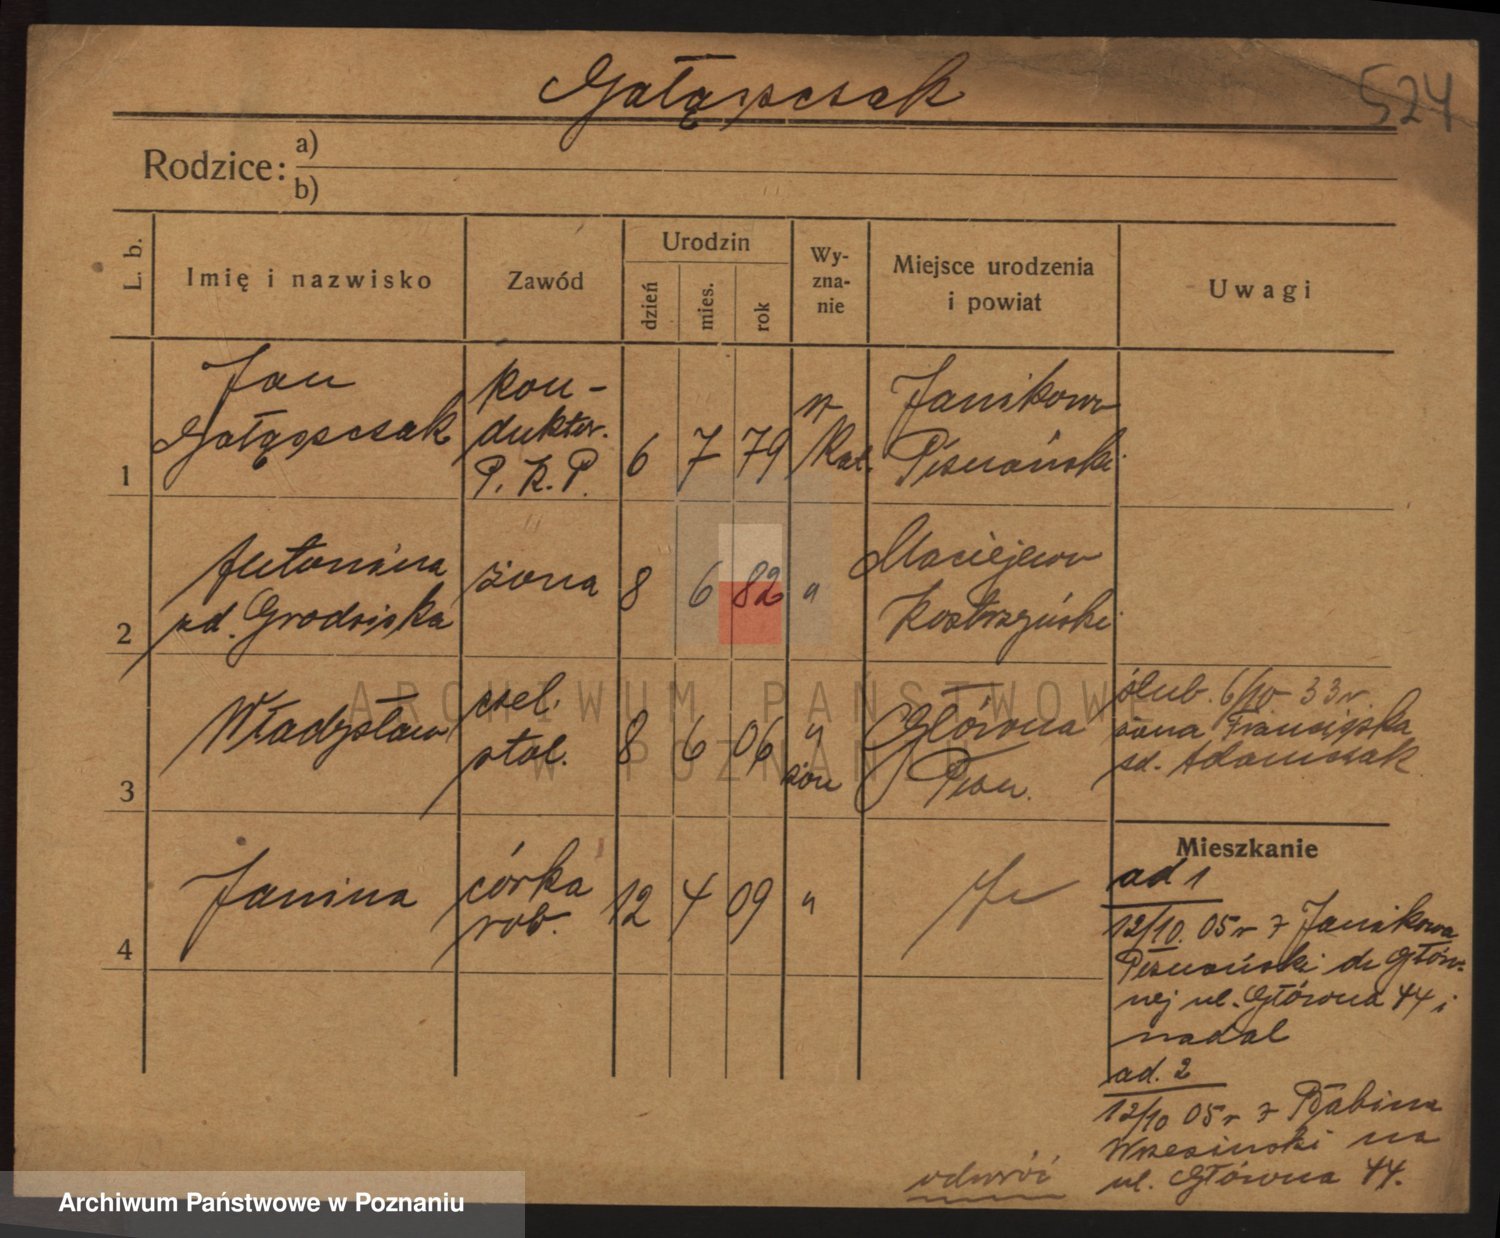 Gałązczak
524
Rodzice: a)
b)
L. b.
Imię i nazwisko
Zawód
Urodzin
dzień
mies.
rok
Wy-
zna-
nie
Miejsce urodzenia
i powiat
Uwagi
1
Jan
Gałązczak
kon-
duktor.
P. K. P.
6 7 79
Kat.
Janikowo
Poznański
2
Antonina
zd. Grodziska
żona
8 6 82
"
Maciejewo
Kostrzyński
3
Władysław
czel.
stol.
8 6 06
"
żon
Główna
Pozn.
ślub. 6/10 33 r.
żona Franciszka
zd. Adamczak
4
Janina
córka
rob.
12 4 09
"
Mieszkanie
ad 1
12/10. 05 r z Janikowa
Poznański do Głów-
nej ul. Główna 44 i
nadal
ad. 2
12/10 05 r z Babina
Wrzesiński na
ul. Główna 44.
odwróć
ARCHIWUM PAŃSTWOWE
W POZNANIU
Archiwum Państwowe w Poznaniu